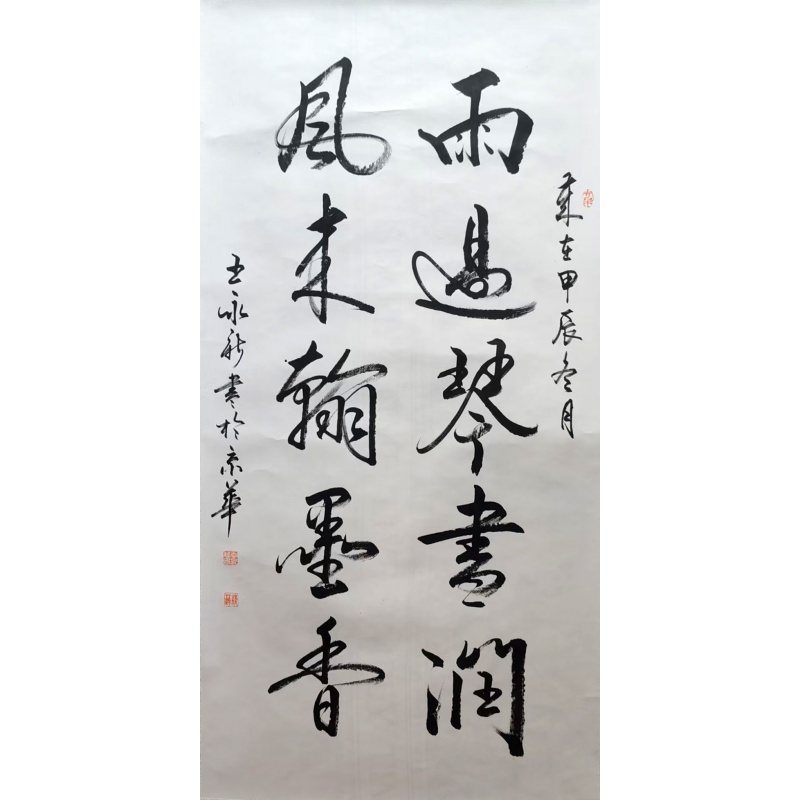 歲在甲辰冬月
雨過琴書潤
風来翰墨香
王永新書於京華